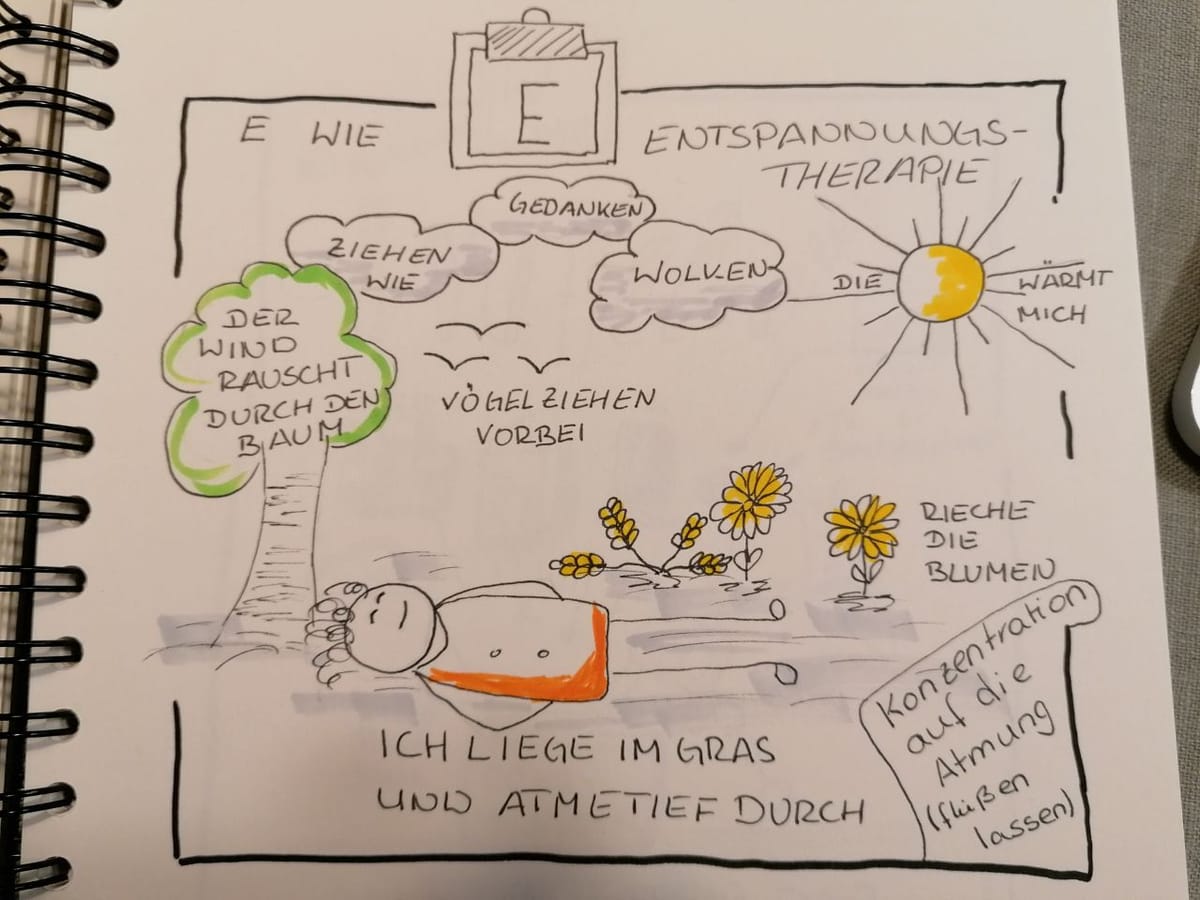 E
E WIE
ENTSPANNUNGS-
THERAPIE
ZIEHEN
WIE
GEDANKEN
WOLKEN
DIE
WÄRMT
MICH
DER
WIND
RAUSCHT
DURCH DEN
BAUM
VÖGEL ZIEHEN
VORBEI
RIECHE
DIE
BLUMEN
ICH LIEGE IM GRAS
UND ATME TIEF DURCH
Konzentration
auf die
Atmung
(flüßen
lassen)